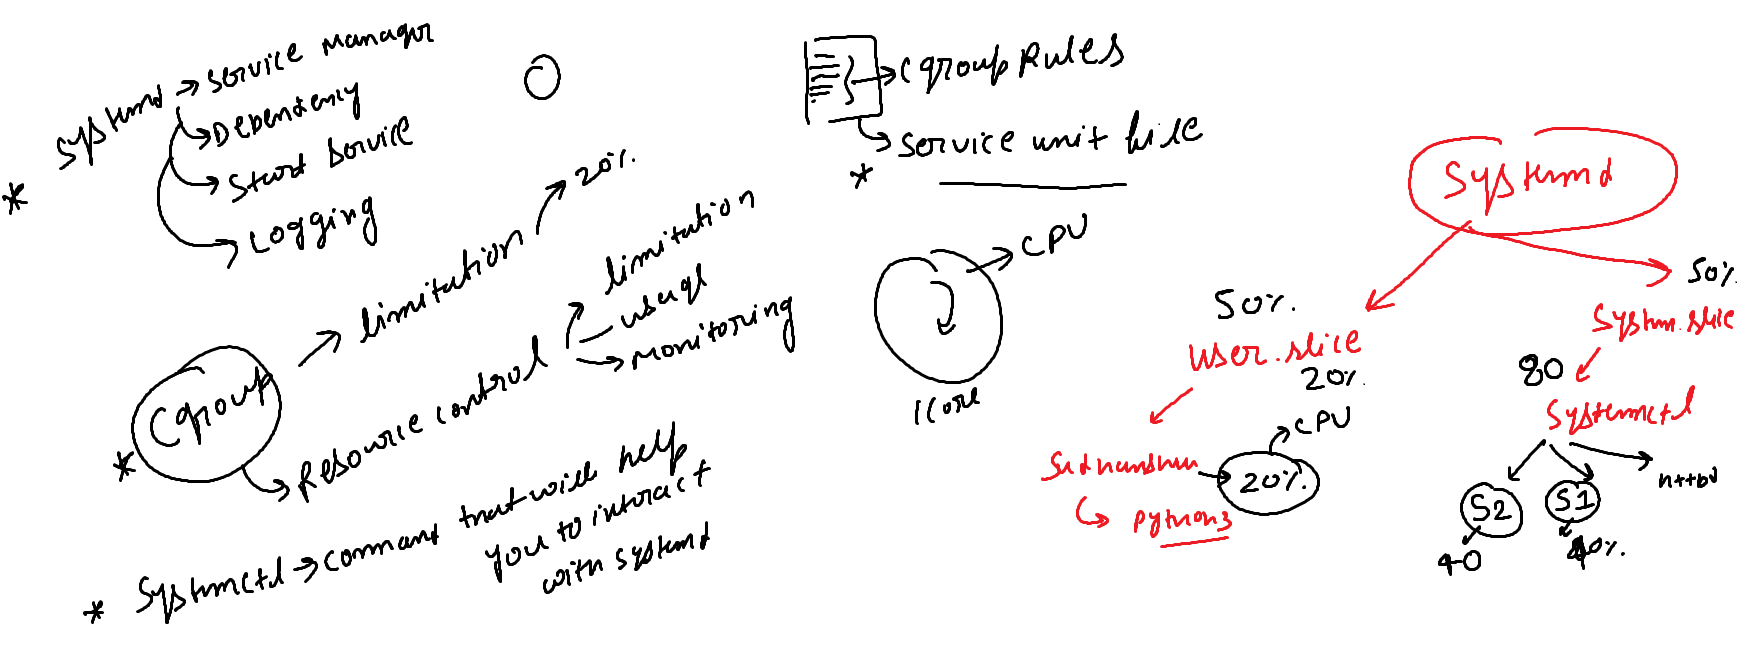 * Systemd → Service Manager
Dependency
Start Service
Logging
* Cgroup
limitation
20%
Resource control
limitation
usage
monitoring
* Systemctl → command that will help
you to interact
with systemd
Cgroup Rules
Service unit file
*
CPU
1 Core
Systemd
50%
User.slice
20%
CPU
20%
python3
50%
System.slice
80
Systemctl
S2
S1
httpd
40
40%